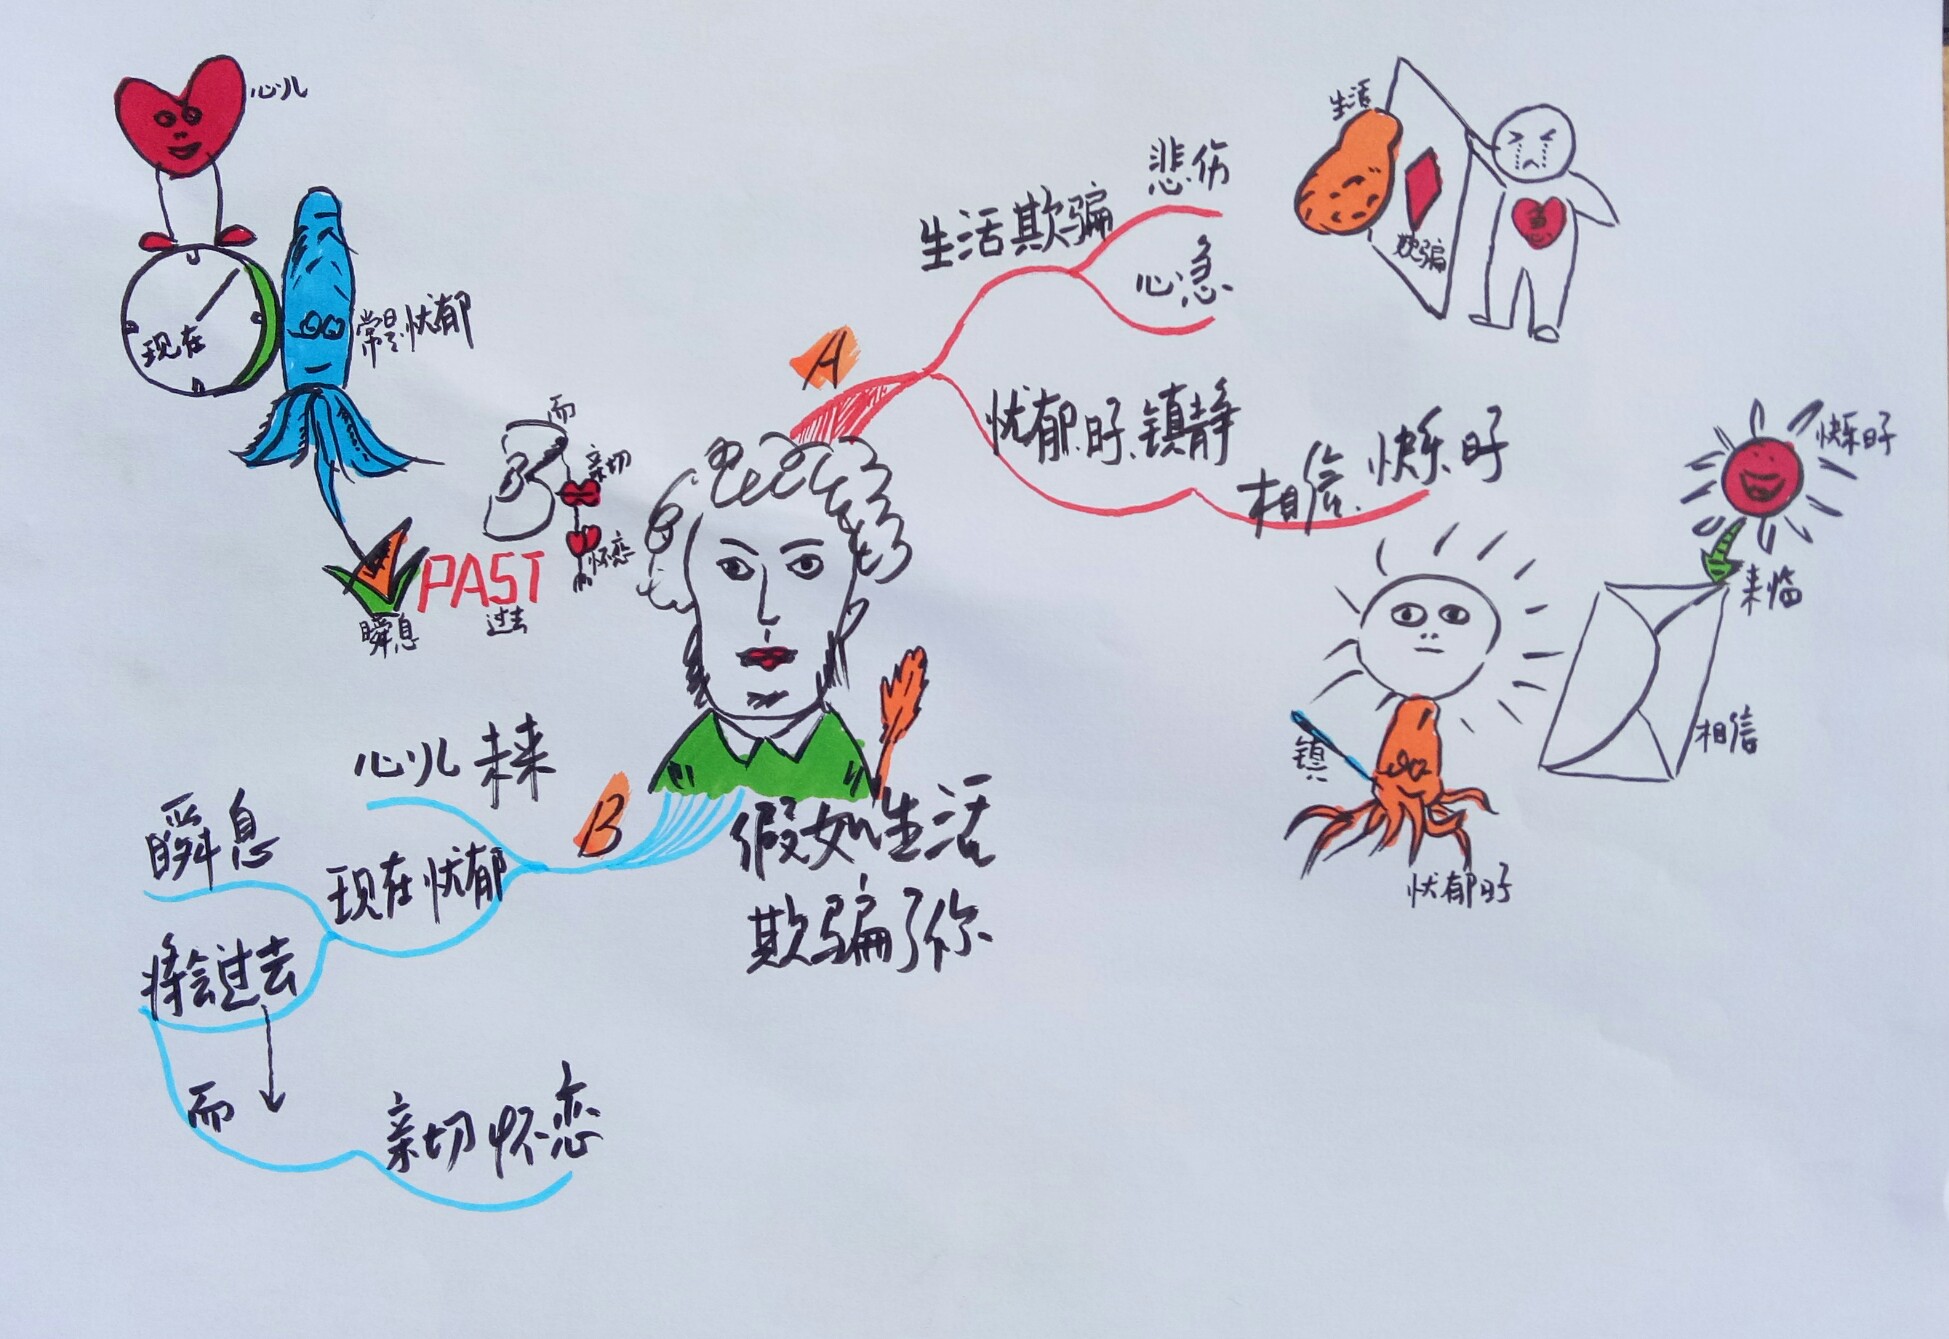 心儿
现在
常是忧郁
瞬息
PAST
过去
而
B
亲切
怀恋
A
生活欺骗
悲伤
心急
忧郁.日子.镇静
相信.快乐.日子
生活
欺骗
急
快乐日子
来临
相信
镇
忧郁日子
假如生活
欺骗了你
B
心儿 未来
现在忧郁
瞬息
将会过去
而
亲切怀恋